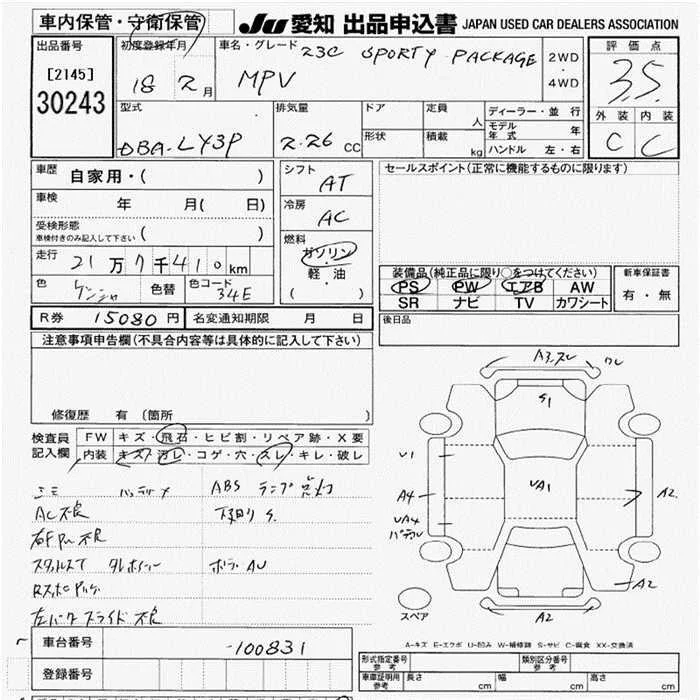 車内保管・守衛保管
JU 愛知 出品申込書 JAPAN USED CAR DEALERS ASSOCIATION
出品番号
[2145]
30243
初度登録年月
18 2月
車名・グレード 23C SPORTY PACKAGE
MPV
2WD
・
4WD
評価点
3.5
外装 内装
C C
型式
DBA-LY3P
排気量
2.26 CC
ドア
形状
定員 人
積載 kg
ディーラー・並行
モデル年式 年
ハンドル 左・右
車歴 自家用・( )
車検 年 月( 日)
受検形態
車検付きのみ記入して下さい ( )
走行 21万7千410km
色 色替 色コード 34E
シフト AT
冷房 AC
燃料
ガソリン
軽・油
( )
セールスポイント(正常に機能するものに限ります)
装備品(純正品に限り○をつけてください)
PS PW エアB AW
SR ナビ TV カワシート
新車保証書
有・無
R券 15080円 名変通知期限 月 日
後日品
注意事項申告欄(不具合内容等は具体的に記入して下さい)
修復歴 有(箇所 )
検査員記入欄
FW キズ・飛石・ヒビ割・リペア跡・X要
内装 キズ・汚レ・コゲ・穴・スレ・キレ・破レ
バッテリー ABS ランプ点灯
AC不良 下回りS
ボデーAU
左バックスライド不良
A3.スレ ワレ
S1
U1
A4
UA4
UA1
A2
A2
A2
スペア
A-キズ E-エクボ U-凹み W-補修跡 S-サビ C-腐食 XX-交換済
車台番号 -100831
登録番号
形式指定番号 参考
類別区分番号 参考
車庫証明用 参考 長さ cm 幅 cm 高さ cm